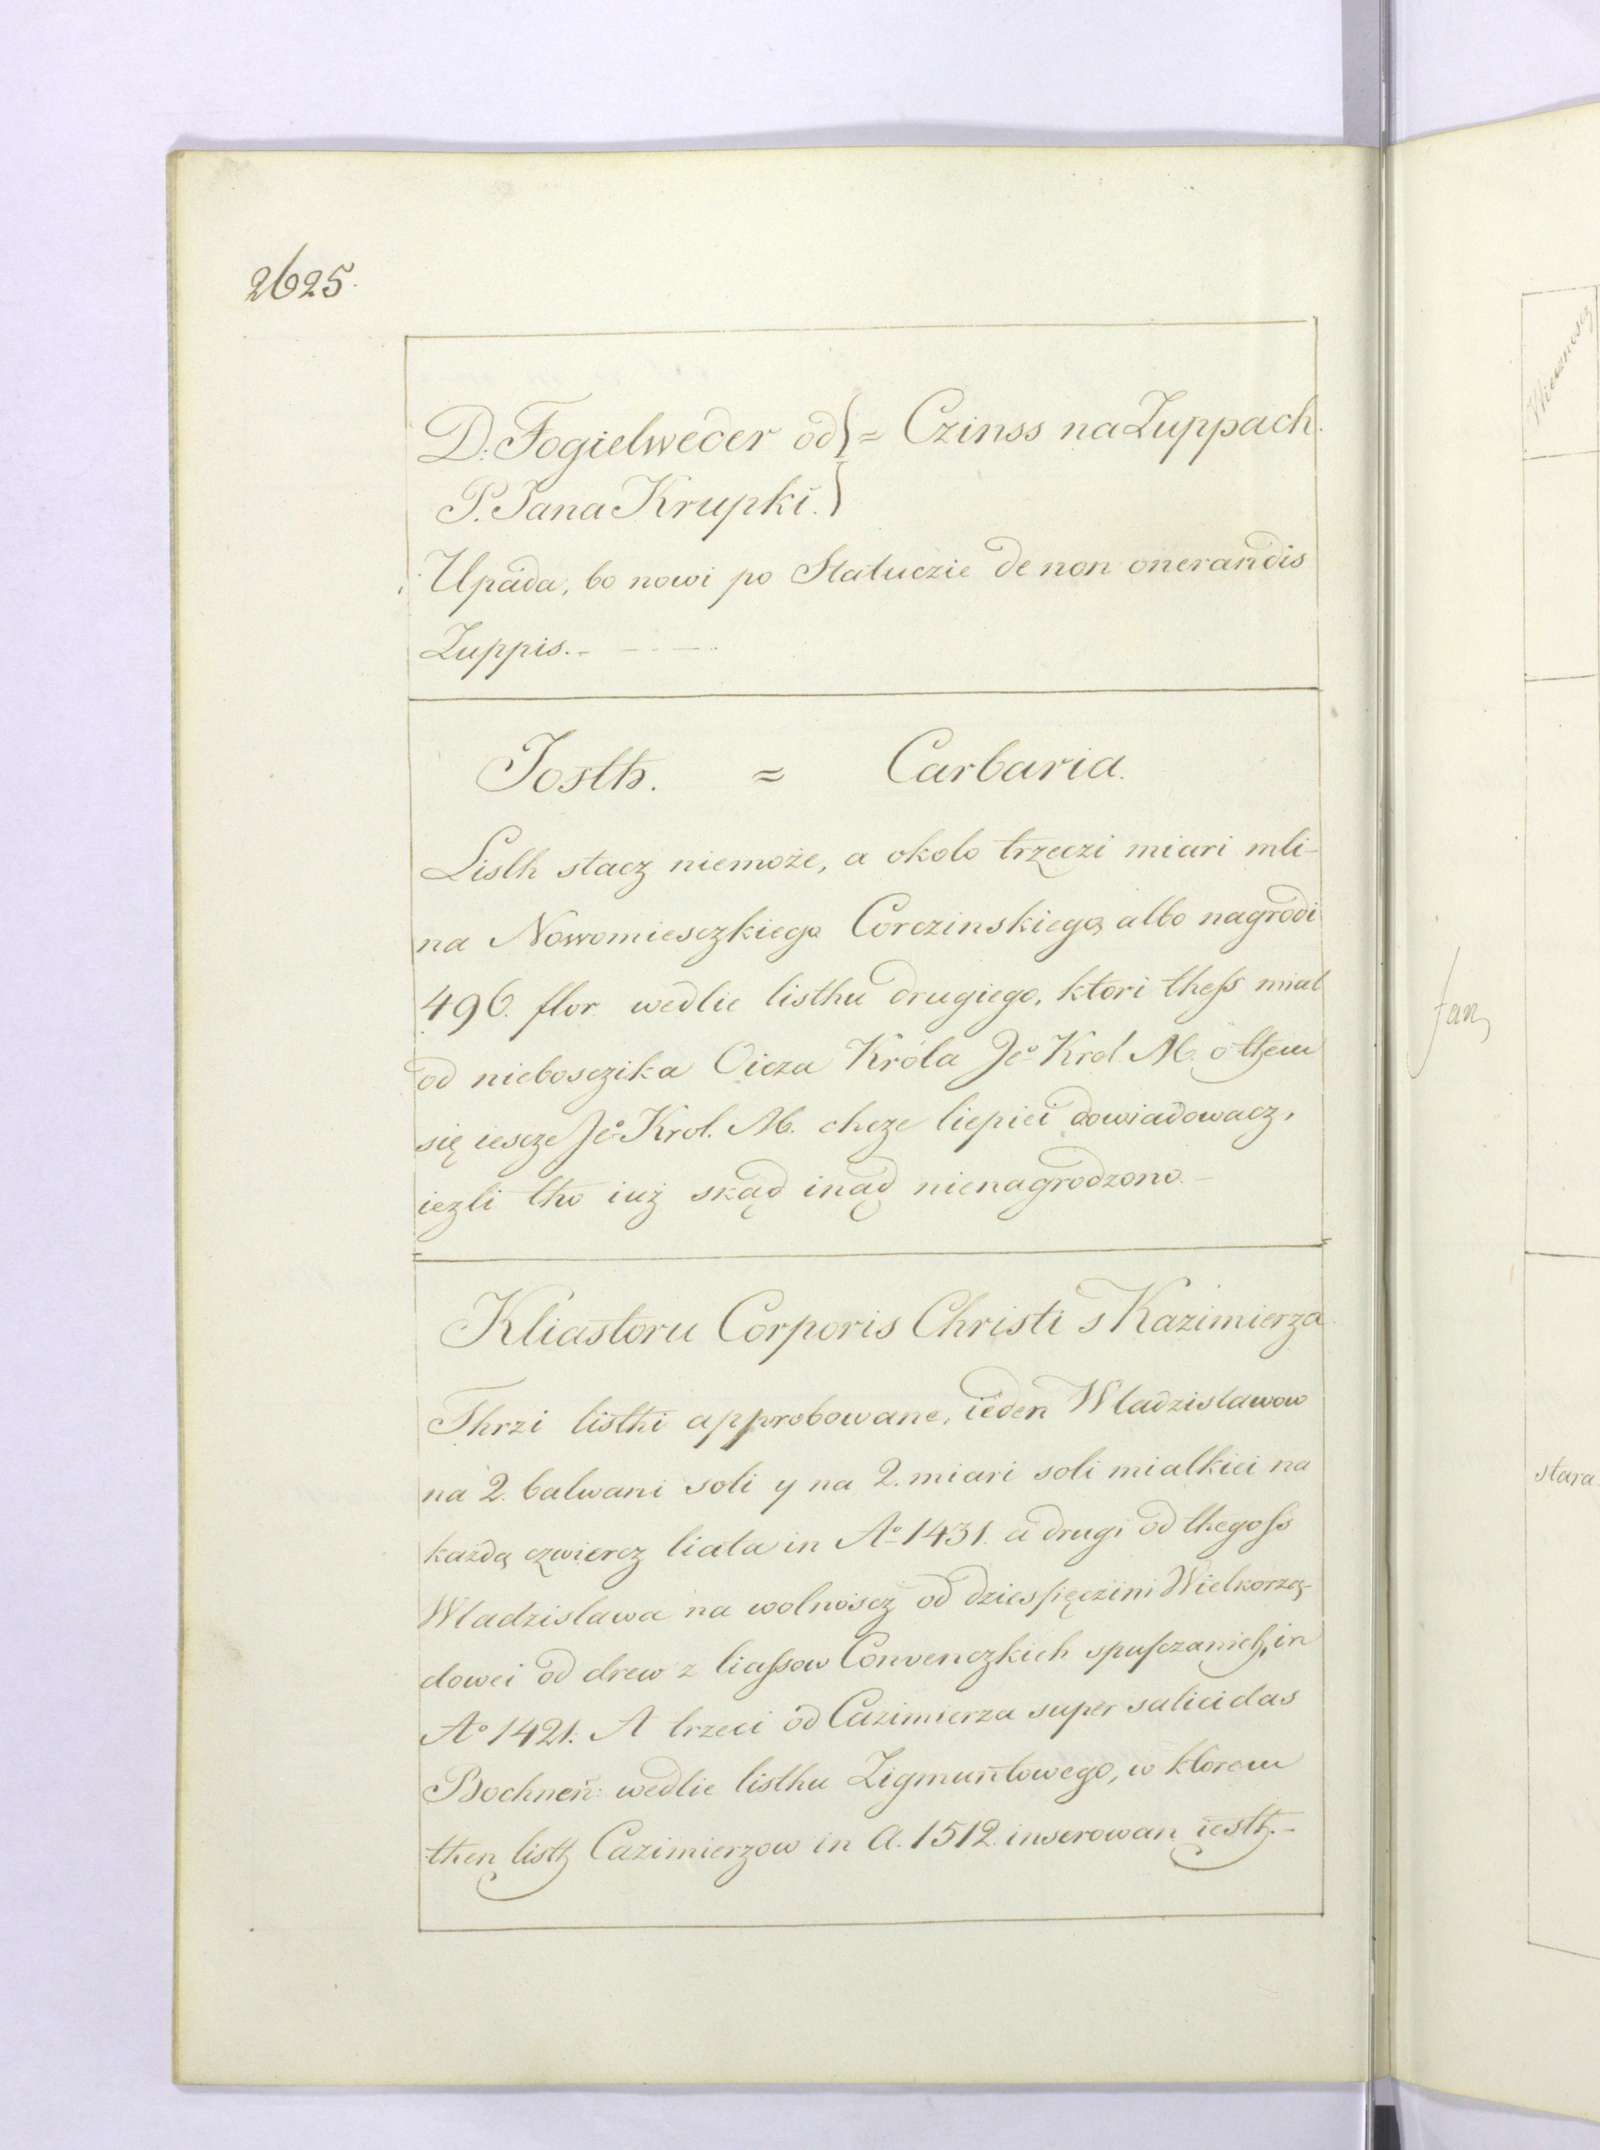 2625.
D. Fogielweder od } = Czinss na Zuppach.
P. Jana Krupki. }
Upada, bo nowi po Statuczie de non onerandis
Zuppis.
Josth. = Carbaria.
Listh stacz niemoże, a około trzeczi miari mli-
na Nowomiesczkiego Corczinskiego, albo nagrodi
496. flor. wedlie listhu drugiego, ktori thess mial
od nieboszczika Oicza Króla Je° Krol. M. o them
się iescze Je° Krol. M. chcze liepiei dowiadowacz,
iezli tho iuż skąd inąd nienagrodzono.
Kliastoru Corporis Christi s Kazimierza.
Thrzi listhi approbowane, ieden Wladzislawow
na 2. balwani soli y na 2. miari soli mialkiei na
każdą czwiercz liata in A° 1431. a drugi od thegoss
Wladzislawa na wolnoscz od dziesięczini Wielkorzą-
dowei od drew z liassow Convenczkich spusczanich, in
A° 1421. A trzeci od Cazimierza super salicidas
Bochnen: wedlie listhu Zigmuntowego, w ktorem
then listh Cazimierzow in A. 1512. inserowan iesth.
Wiecznosz
Jan
stara